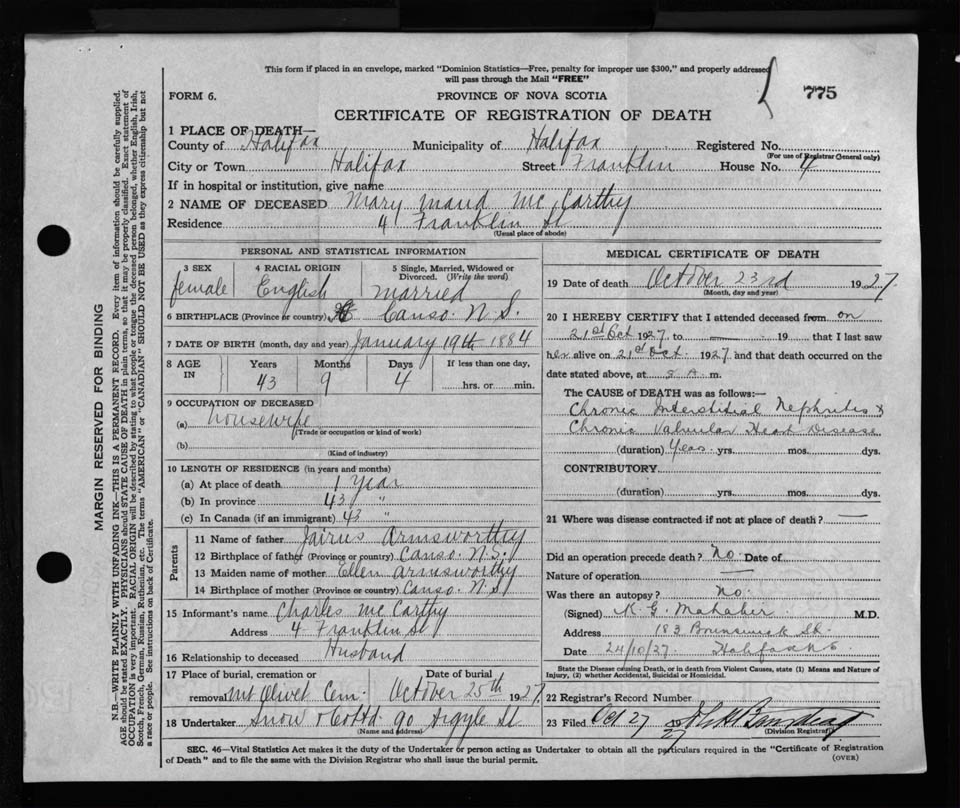 This form if placed in an envelope, marked "Dominion Statistics—Free, penalty for improper use $300," and properly addressed
will pass through the Mail "FREE"
FORM 6. PROVINCE OF NOVA SCOTIA 775
CERTIFICATE OF REGISTRATION OF DEATH
1 PLACE OF DEATH—
County of Halifax Municipality of Halifax Registered No.
(For use of Registrar General only)
City or Town Halifax Street Franklin House No. 4
If in hospital or institution, give name
2 NAME OF DECEASED Mary Maud McCarthy
Residence 4 Franklin St
(Usual place of abode)
PERSONAL AND STATISTICAL INFORMATION
3 SEX 4 RACIAL ORIGIN 5 Single, Married, Widowed or
Divorced. (Write the word)
female English married
6 BIRTHPLACE (Province or country) Canso. N.S.
7 DATE OF BIRTH (month, day and year) January 19th 1884
8 AGE IN Years Months Days If less than one day,
43 9 4 hrs. or min.
9 OCCUPATION OF DECEASED
(a) housewife
(Trade or occupation or kind of work)
(b)
(Kind of industry)
10 LENGTH OF RESIDENCE (in years and months)
(a) At place of death 1 year
(b) In province 43 "
(c) In Canada (if an immigrant) 43 "
Parents
11 Name of father Jairus Armsworthy
12 Birthplace of father (Province or country) Canso. N.S.
13 Maiden name of mother Ellen Armsworthy
14 Birthplace of mother (Province or country) Canso. N.S
15 Informant's name Charles McCarthy
Address 4 Franklin St
16 Relationship to deceased Husband
17 Place of burial, cremation or Date of burial
removal Mt Olivet Cem. October 25th 1927.
18 Undertaker Snow & Co Ltd 90 Argyle St
(Name and address)
MEDICAL CERTIFICATE OF DEATH
19 Date of death October 23rd 1927.
(Month, day and year)
20 I HEREBY CERTIFY that I attended deceased from on
21st Oct 1927 to — 19 that I last saw
her alive on 21st Oct. 1927 and that death occurred on
date stated above, at 5 A. m.
The CAUSE OF DEATH was as follows:—
Chronic Interstitial Nephritis &
Chronic Valvular Heart Disease
(duration) Years yrs. mos. dys.
CONTRIBUTORY
(duration) yrs. mos. dys.
21 Where was disease contracted if not at place of death? —
Did an operation precede death? no Date of
Nature of operation —
Was there an autopsy? no.
(Signed) K. G. Mahabir M.D.
Address 183 Brunswick St.
Date 24/10/27. Halifax N.S.
State the Disease causing Death, or in death from Violent Causes, state (1) Means and Nature of
Injury, (2) whether Accidental, Suicidal or Homicidal.
22 Registrar's Record Number
23 Filed Oct 27 27
(Division Registrar)
SEC. 46—Vital Statistics Act makes it the duty of the Undertaker or person acting as Undertaker to obtain all the particulars required in the "Certificate of Registration
of Death" and to file the same with the Division Registrar who shall issue the burial permit. (OVER)
MARGIN RESERVED FOR BINDING
N.B.—WRITE PLAINLY WITH UNFADING INK—THIS IS A PERMANENT RECORD. Every item of information should be carefully supplied.
AGE should be stated EXACTLY. PHYSICIANS should STATE CAUSE OF DEATH in plain terms, so that it may be properly classified. Exact statement of
OCCUPATION is very important. RACIAL ORIGIN will be described by stating to what people or tongue the deceased person belonged, whether English, Irish,
Scotch, French, German, Russian, Ruthenian, etc. The terms "AMERICAN" or "CANADIAN" SHOULD NOT BE USED as they express citizenship but not
a race or people. See instructions on back of Certificate.